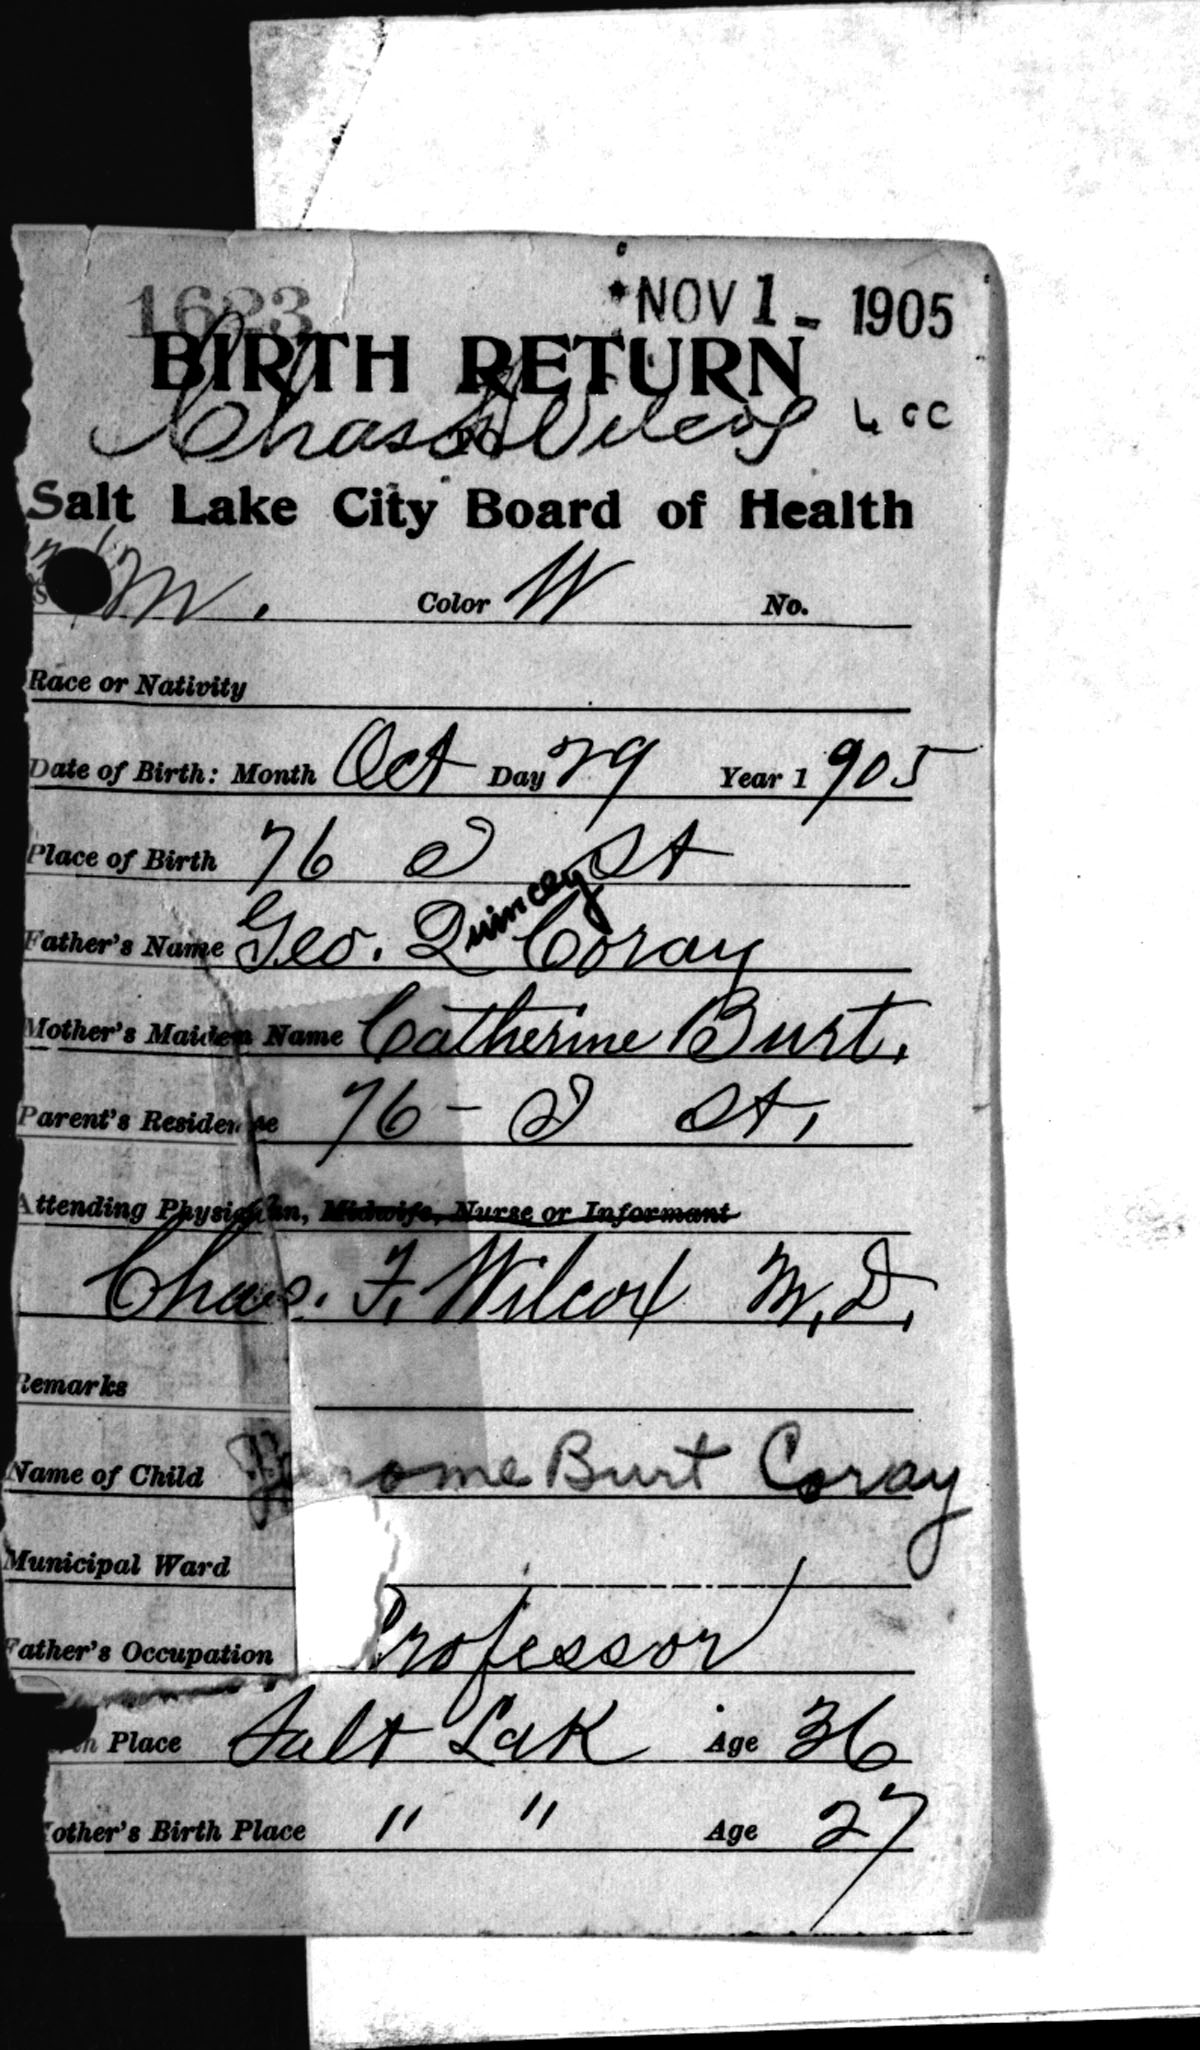 1623 NOV 1 - 1905
BIRTH RETURN
Chas Wilcox
Salt Lake City Board of Health
M. Color W No.
Race or Nativity
Date of Birth: Month Oct Day 29 Year 1 905
Place of Birth 76 St
Quincey
Father's Name Geo. Q Coray
Mother's Maiden Name Catherine Burt.
Parent's Residence 76 - St.
Attending Physician, Midwife, Nurse or Informant
Chas. F. Wilcox M.D.
Remarks
Name of Child Jerome Burt Coray
Municipal Ward
Father's Occupation Professor
Place Salt Lak Age 36
other's Birth Place " " Age 27